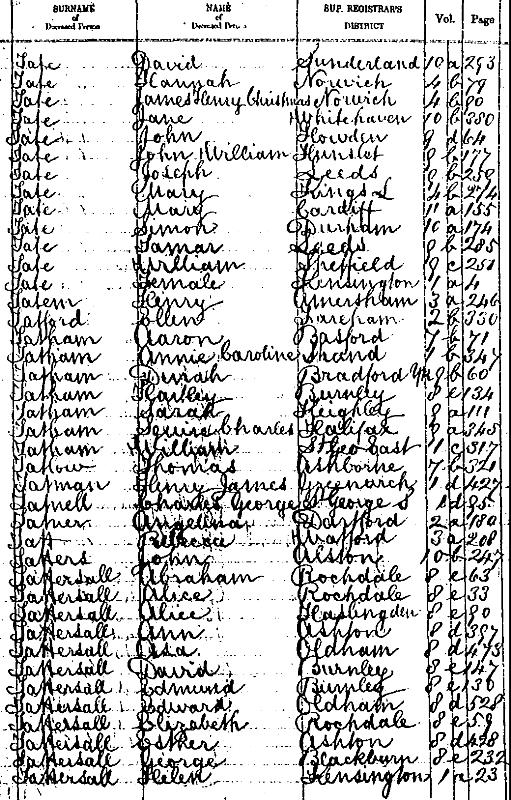 SURNAME of Deceased Person NAME of Deceased Person SUP. REGISTRAR'S DISTRICT Vol. Page
Tate David Sunderland 10 a 293
Tate Hannah Norwich 4 b 79
Tate James Henry Christmas Norwich 4 b 80
Tate Jane Whitehaven 10 b 380
Tate John Howden 9 d 64
Tate John William Hunslet 8 b 177
Tate Joseph Leeds 8 b 258
Tate Mary Kings L 4 b 274
Tate Mary Cardiff 11 a 155
Tate Simon Durham 10 a 174
Tate Tamar Leeds 8 b 285
Tate William Sheffield 9 c 251
Tate Female Kensington 1 a 4
Tatem Henry Amersham 3 a 246
Tatford Ellen Fareham 2 b 330
Tatham Aaron Basford 7 b 71
Tatham Annie Caroline Strand 1 b 347
Tatham Dinah Bradford Yk 9 b 60
Tatham Hartley Burnley 8 e 134
Tatham Sarah Keighley 8 a 111
Tatham Squire Charles Halifax 8 a 345
Tatham William St Geo East 1 c 317
Tatlow Thomas Ashborne 7 b 321
Tatman Henry James Greenwich 1 d 427
Tatnell Charles George St George S 1 d 85
Tatner Angelina Dartford 2 a 180
Tatt Rebecca Watford 3 a 208
Tatters John Alston 10 b 247
Tattersall Abraham Rochdale 8 e 63
Tattersall Alice Rochdale 8 e 33
Tattersall Alice Haslingden 8 e 80
Tattersall Ann Ashton 8 d 397
Tattersall Asa Oldham 8 d 473
Tattersall David Burnley 8 e 147
Tattersall Edmund Burnley 8 e 136
Tattersall Edward Oldham 8 d 528
Tattersall Elizabeth Rochdale 8 e 59
Tattersall Esther Ashton 8 d 428
Tattersall George Blackburn 8 e 232
Tattersall Helen Kensington 1 a 23